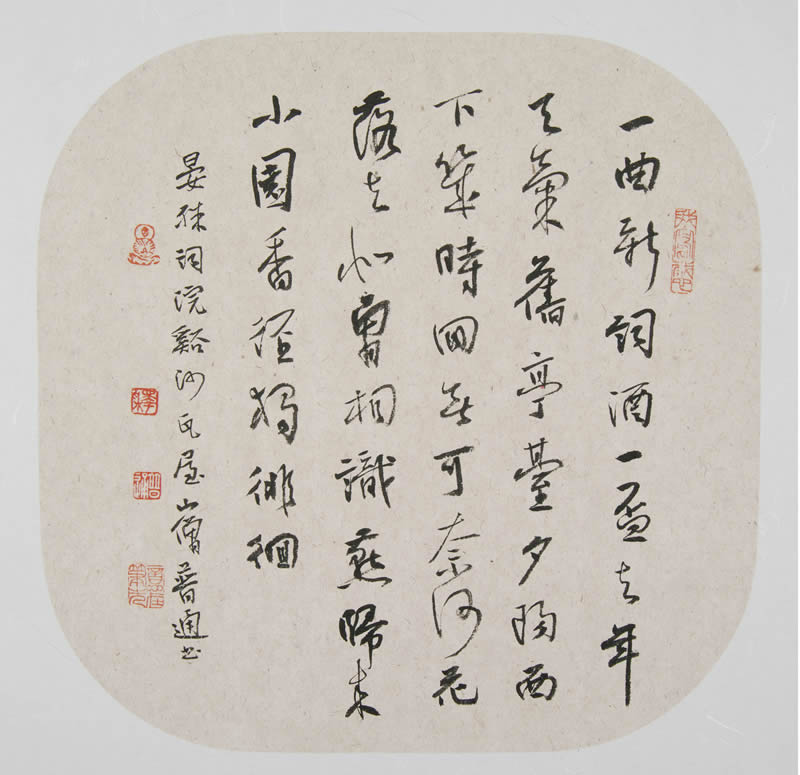 一曲新詞酒一盃去年
天氣舊亭臺夕陽西
下幾時回無可奈何花
落去似曾相識燕歸來
小園香徑獨徘徊
晏殊詞浣谿沙瓦屋山僧普通書